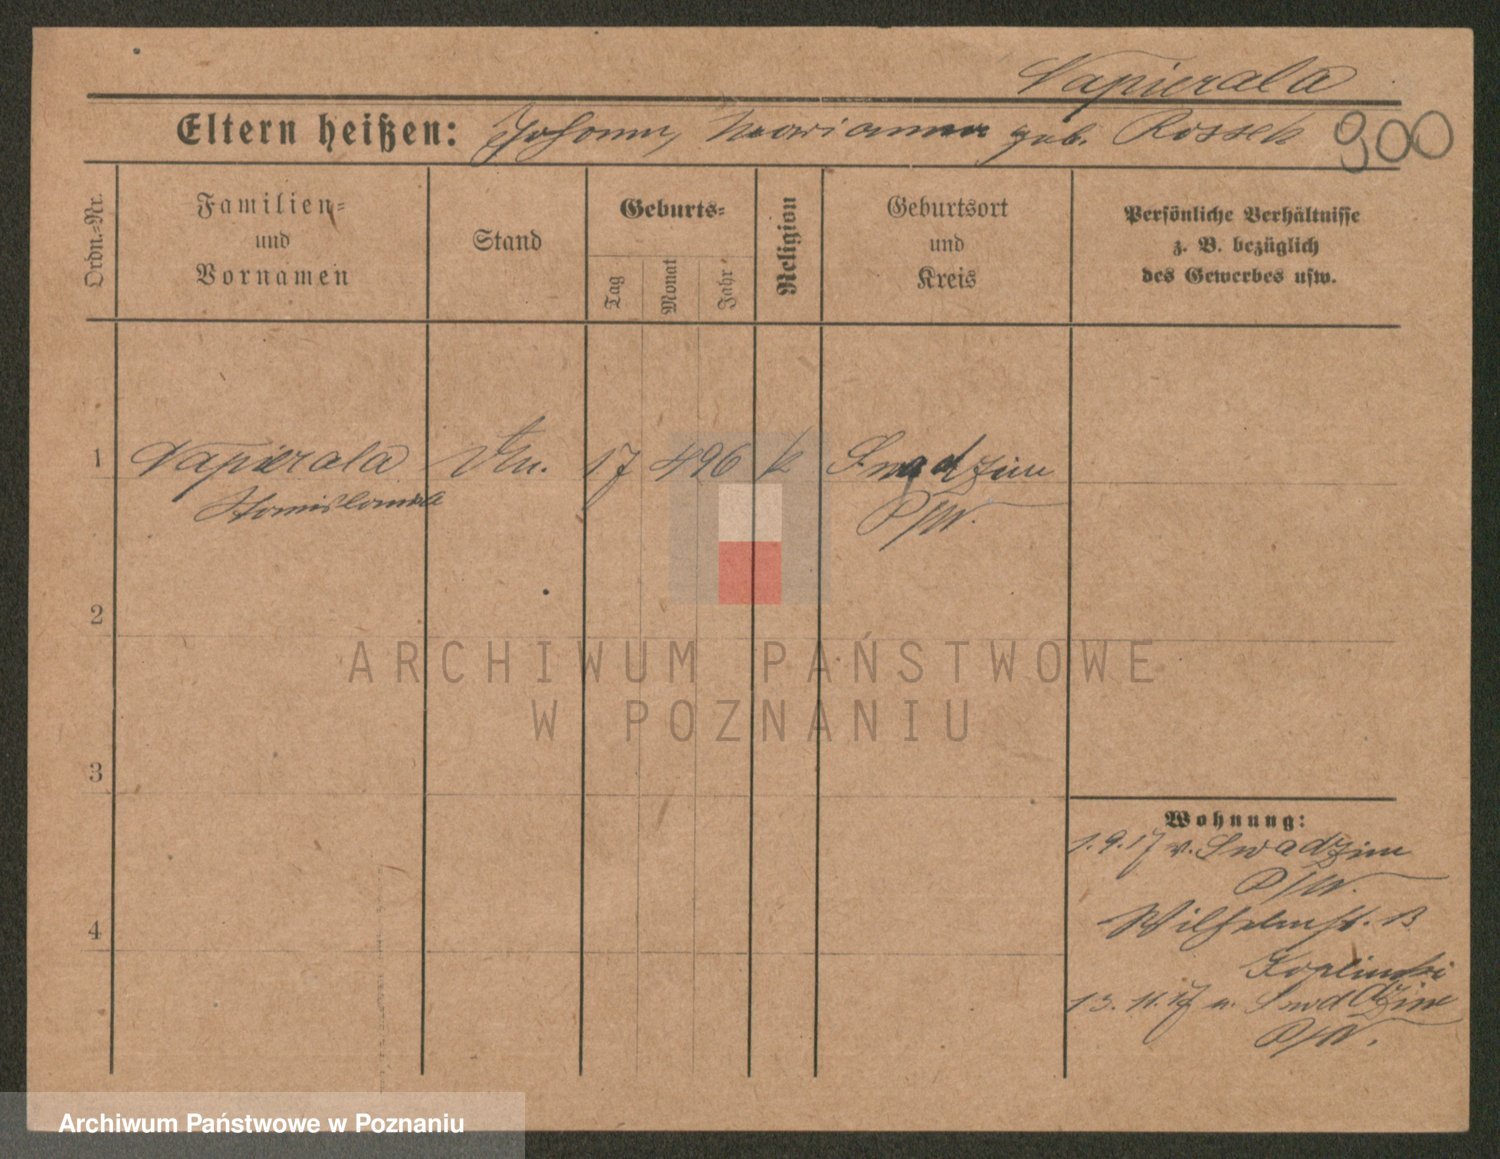 Napierala
Eltern heißen: Johann, Marianna geb. Rossek 900
Ordn.-Nr.
Familien-
und
Vornamen
Stand
Geburts-
Tag
Monat
Jahr
Religion
Geburtsort
und
Kreis
Persönliche Verhältnisse
z. B. bezüglich
des Gewerbes usw.
1 Napierala 17 4 96 k Swadzim
Stanislawa P/W.
2
3
4
Wohnung:
1.9.17 v. Swadzim
P/W.
Wilhelmst. 13
Koplinski
13.11.17 n. Swadzim
P/W.
ARCHIWUM PAŃSTWOWE
W POZNANIU
Archiwum Państwowe w Poznaniu